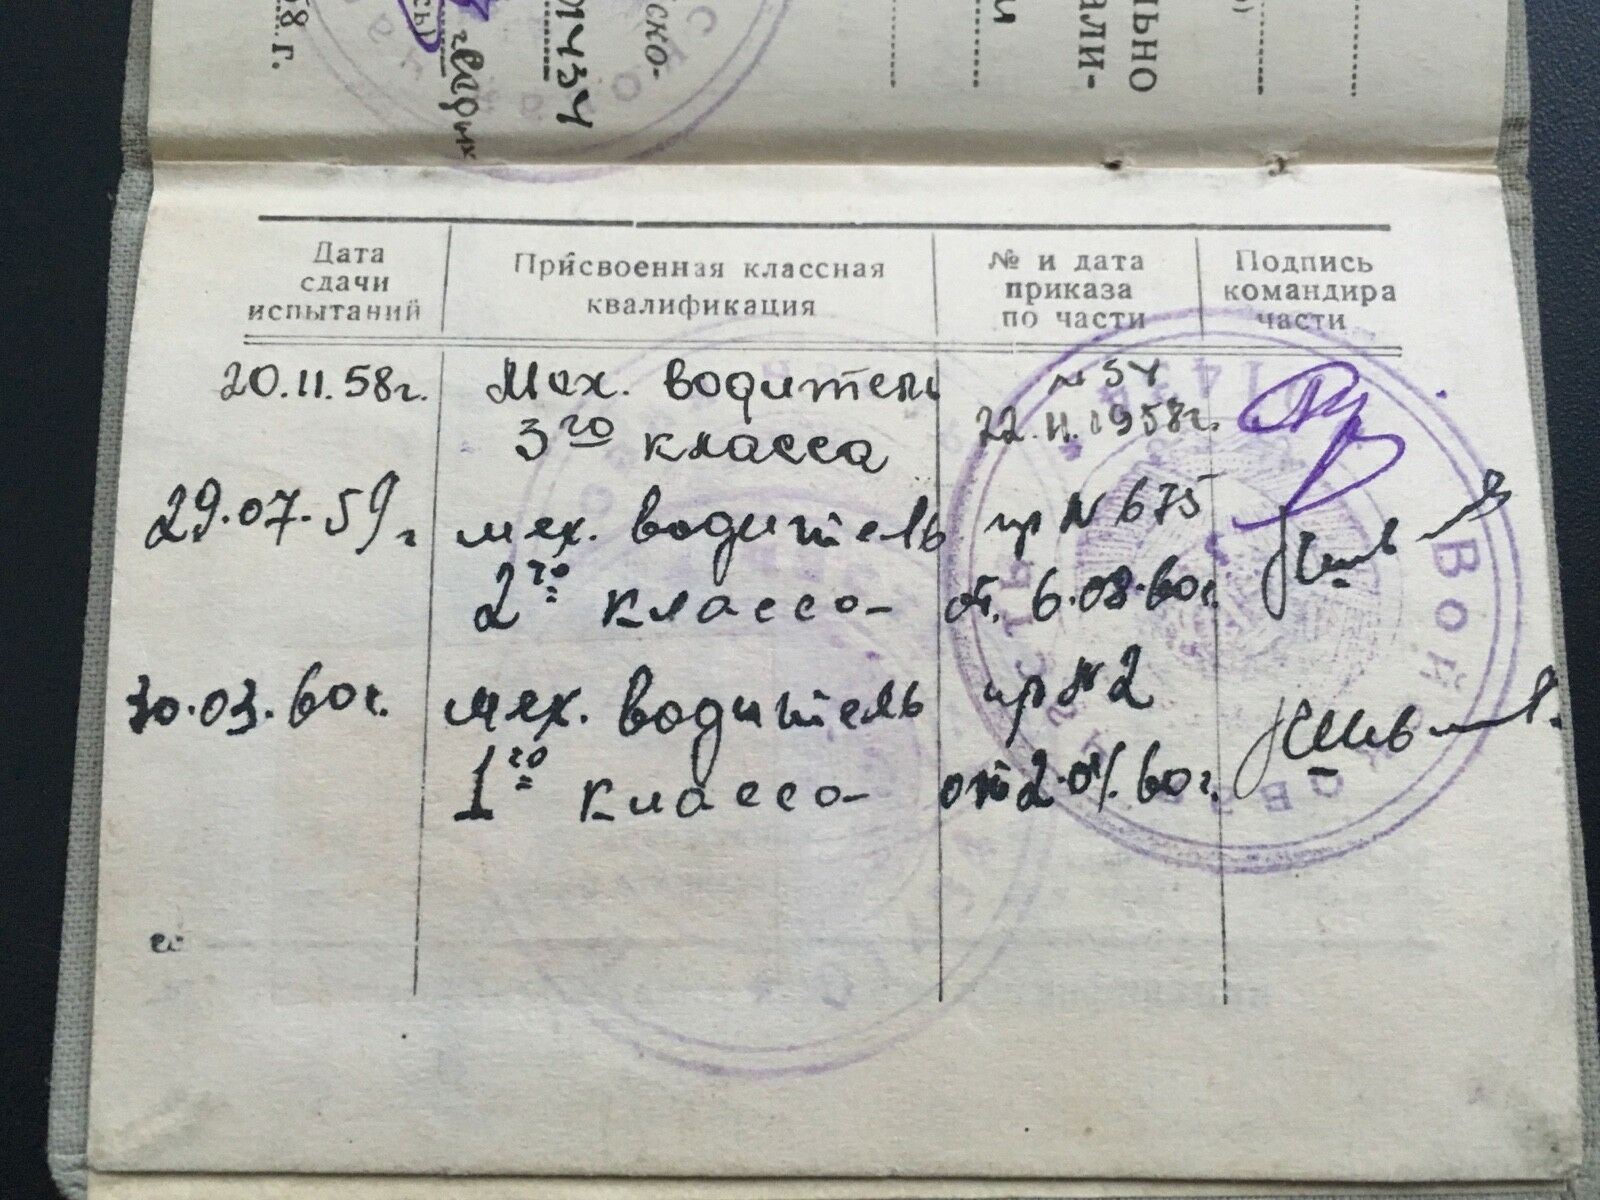 Дата сдачи испытаний
Присвоенная классная квалификация
№ и дата приказа по части
Подпись командира части
20.11.58г.
Мех. водитель
3го класса
22.11.1958г.
29.07.59г
мех. водитель
2го класса
пр N 675
от. 6.08.60г.
30.03.60г.
мех. водитель
1го класса
пр N 2
от 2.04.60г.
58 г.
ско-
льно
али-
Войсковая